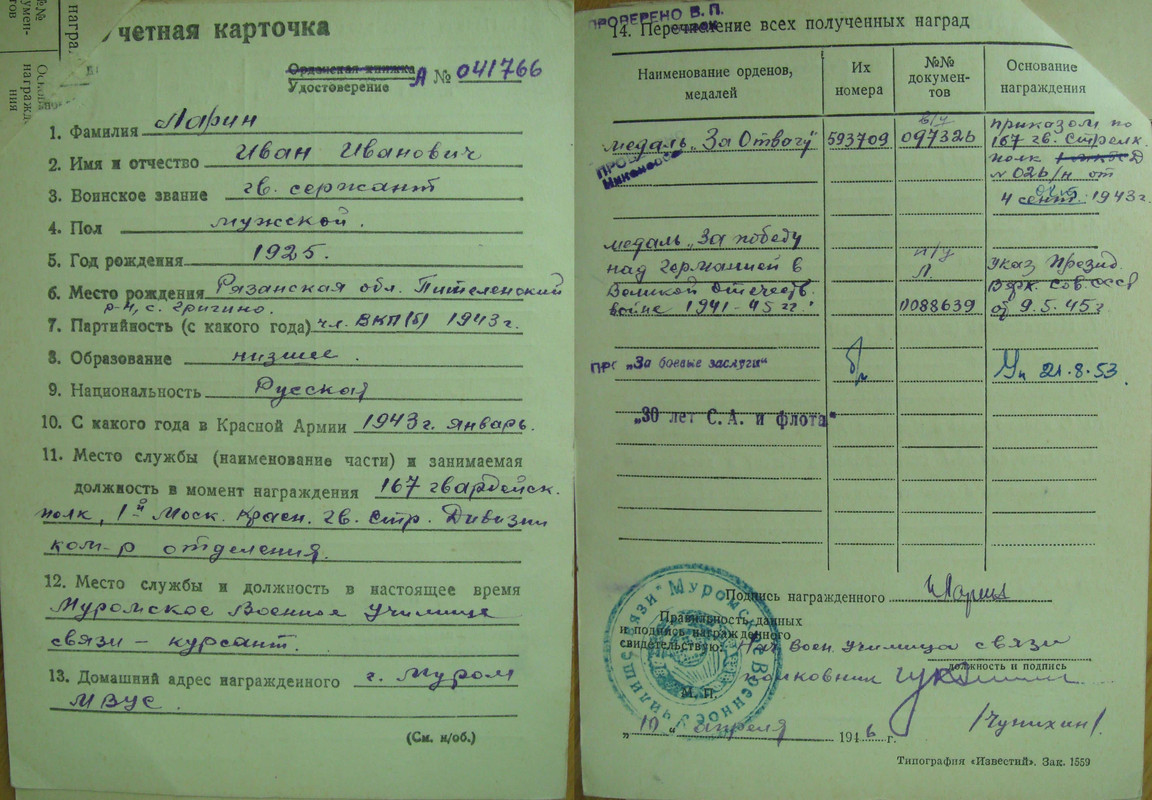 №№
награ
Учетная карточка
Орденская книжка
Удостоверение А № 041766
1. Фамилия Ларин
2. Имя и отчество Иван Иванович
3. Воинское звание гв. сержант
4. Пол мужской.
5. Год рождения 1925.
6. Место рождения Рязанская обл. Пителенский
р-н, с. Григино.
7. Партийность (с какого года) чл. ВКП(б) 1943 г.
8. Образование низшее.
9. Национальность Русский
10. С какого года в Красной Армии 1943 г. январь.
11. Место службы (наименование части) и занимаемая
должность в момент награждения 167 гвардейск.
полк, 1й Моск. Красн. гв. Стр. Дивизии
ком-р отделения.
12. Место службы и должность в настоящее время
Муромское Военное Училище
связи – курсант.
13. Домашний адрес награжденного г. Муром
МВУС.
(См. н/об.)
ПРОВЕРЕНО В. П.
14. Перечисление всех полученных наград
Наименование орденов, медалей
Их номера
№№ докумен-тов
Основание награждения
медаль „За Отвагу" 593709 в/у 097326 приказом по
167 гв. Стрелк.
полк
N 026/н от
4 сент. 1943 г.
медаль „За победу
над Германией в п/у Л Указ Презид.
Великой Отечеств. Верх. Сов. СССР
войне 1941-45 гг." 0088639 от 9.5.45 г
„За боевые заслуги" б/н Ук 21.8.53.
„30 лет С. А. и флота"
Подпись награжденного ИЛарин
Правильность данных
и подпись награжденного
свидетельствую: Нач. Воен. Училища связи
должность и подпись
полковник
М. П.
/Чунихин/.
„10" апреля 1946 г.
Муромское Военное Училище связи
Типография «Известий». Зак. 1559